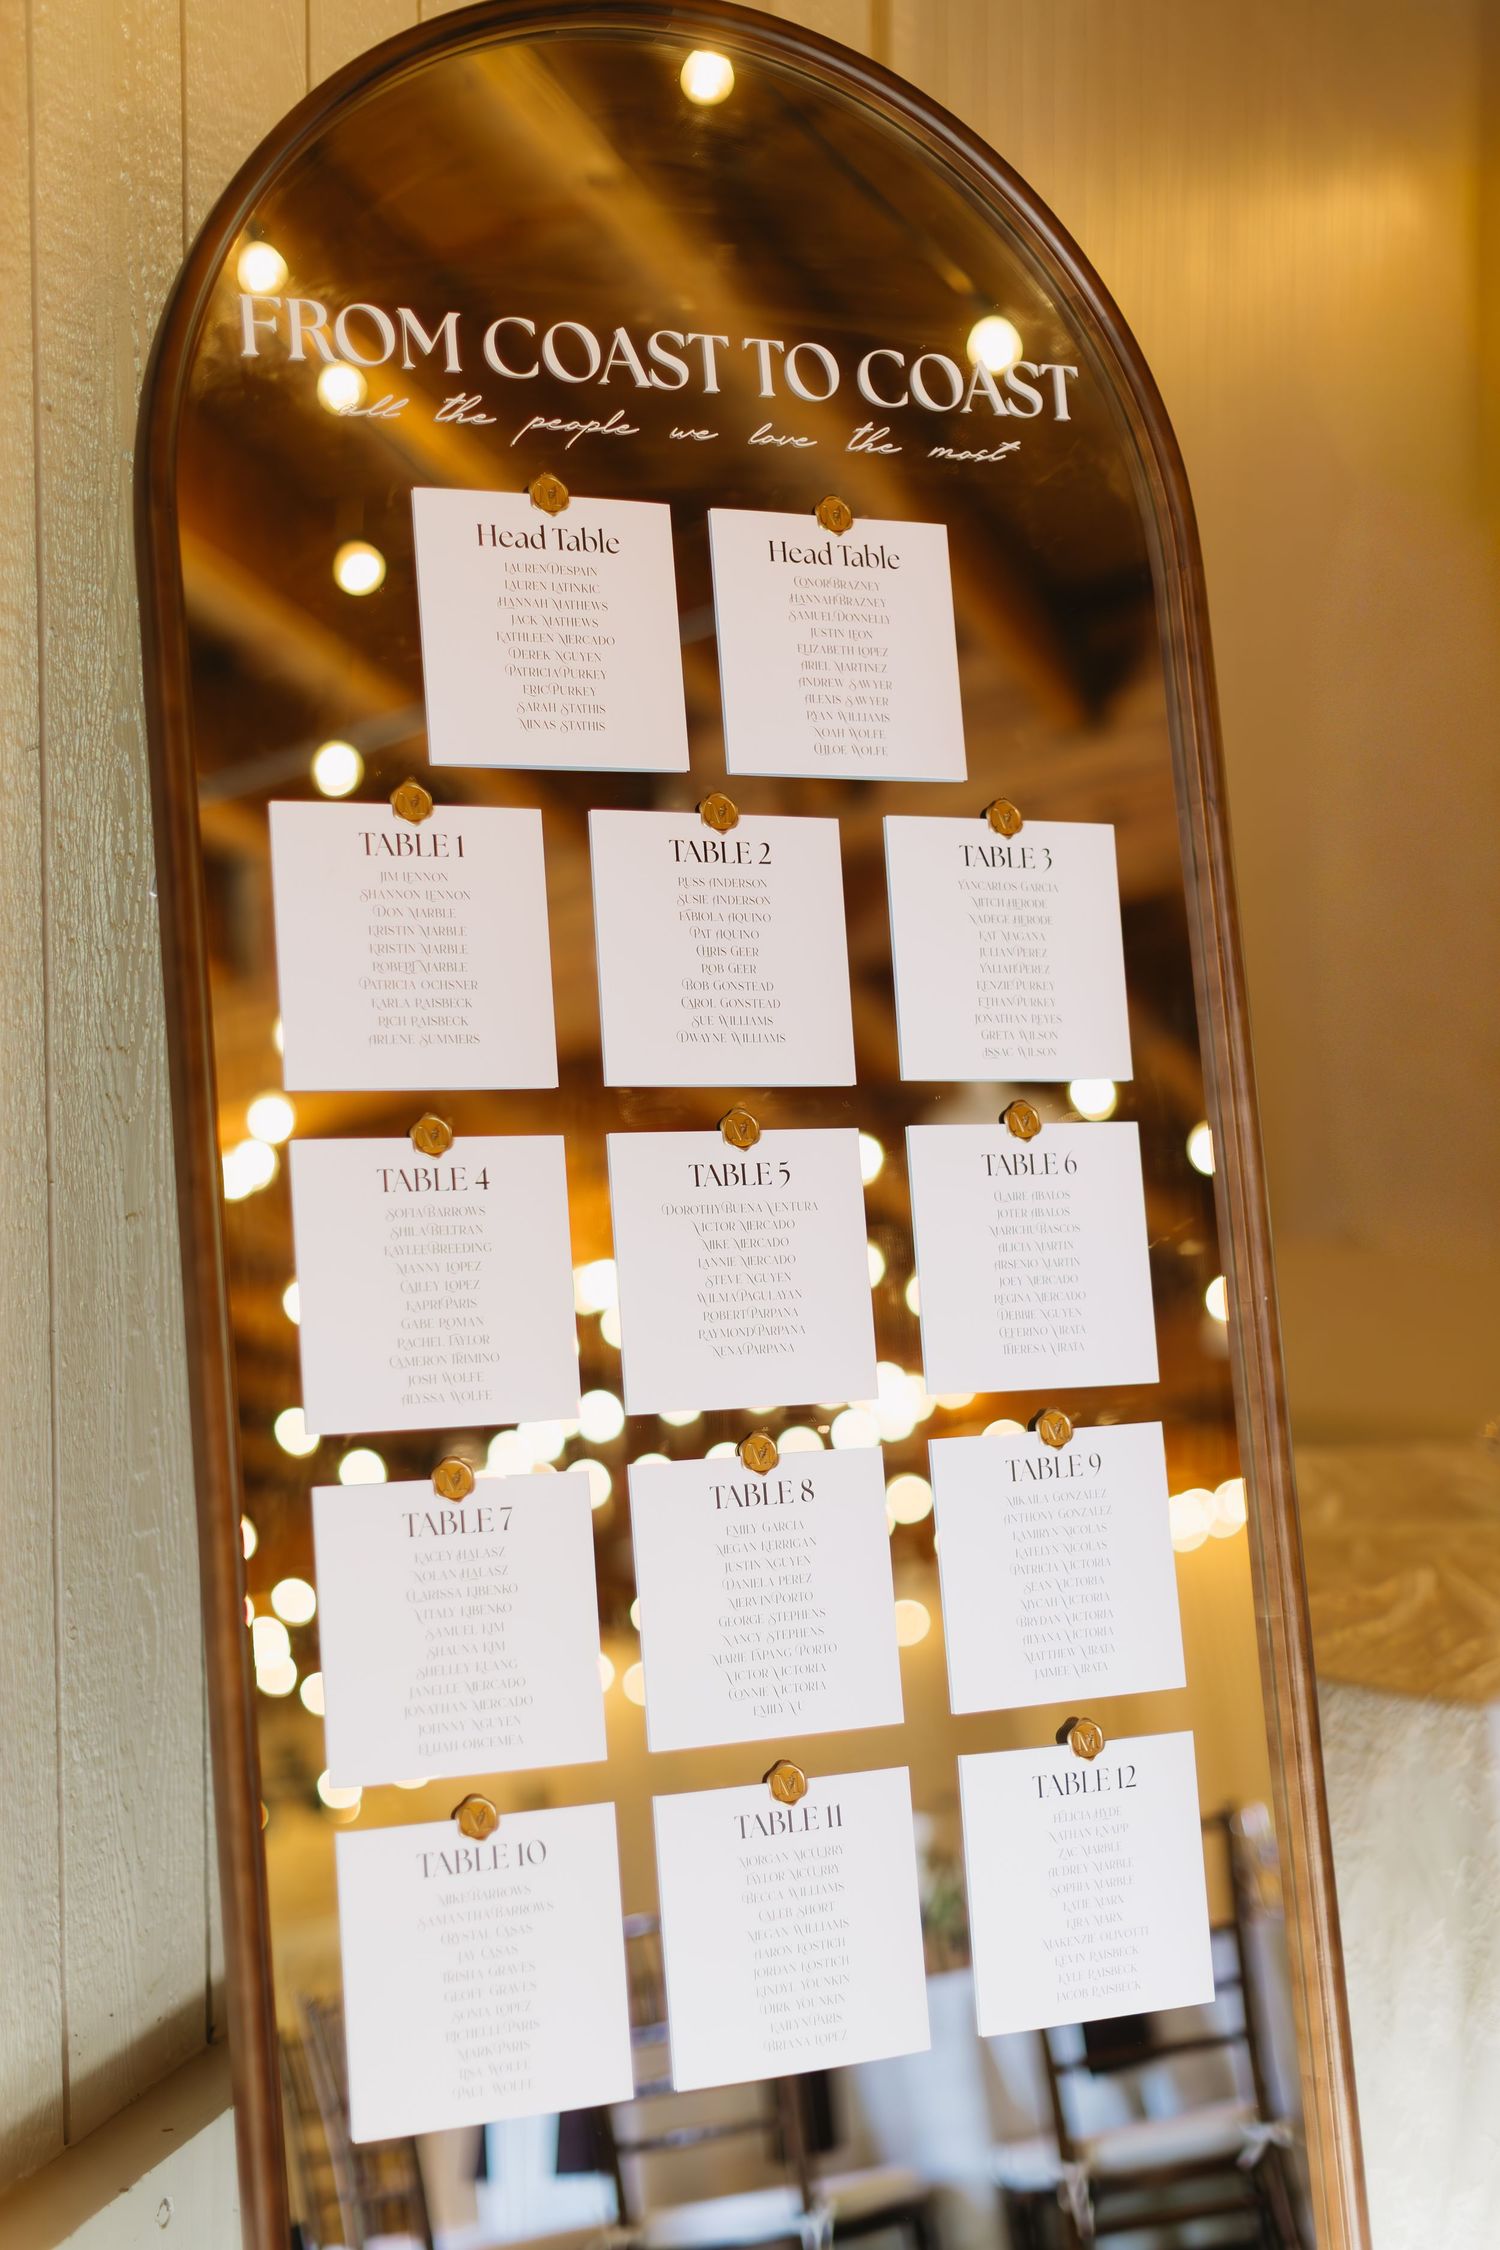 FROM COAST TO COAST
all the people we love the most
Head Table
LAUREN DESPAIN
LAUREN LATINKIC
HANNAH MATHEWS
JACK MATHEWS
KATHLEEN MERCADO
DEREK NGUYEN
PATRICIA PURKEY
ERIC PURKEY
SARAH STATHIS
MINAS STATHIS
Head Table
CONOR BRAZNEY
HANNAH BRAZNEY
SAMUEL DONNELLY
JUSTIN LEON
ELIZABETH LOPEZ
ARIEL MARTINEZ
ANDREW SAWYER
ALEXIS SAWYER
RYAN WILLIAMS
NOAH WOLFE
CHLOE WOLFE
TABLE 1
JIM LENNON
SHANNON LENNON
DON MARBLE
KRISTIN MARBLE
KRISTIN MARBLE
ROBERT MARBLE
PATRICIA OCHSNER
KARLA RAISBECK
RICH RAISBECK
ARLENE SUMMERS
TABLE 2
RUSS ANDERSON
SUSIE ANDERSON
FABIOLA AQUINO
PAT AQUINO
CHRIS GEER
ROB GEER
BOB GONSTEAD
CAROL GONSTEAD
SUE WILLIAMS
DWAYNE WILLIAMS
TABLE 3
YANCARLOS GARCIA
MITCH HERODE
NADEGE HERODE
KAT MAGANA
JULIAN PEREZ
YALIAH PEREZ
KENZIE PURKEY
ETHAN PURKEY
JONATHAN REYES
GRETA WILSON
ISSAC WILSON
TABLE 4
SOFIA BARROWS
SHILA BELTRAN
KAYLEE BREEDING
MANNY LOPEZ
CAILEY LOPEZ
KAPRI PARIS
GABE ROMAN
RACHEL TAYLOR
CAMERON TRIMINO
JOSH WOLFE
ALYSSA WOLFE
TABLE 5
DOROTHY BUENA VENTURA
VICTOR MERCADO
MIKE MERCADO
LANNIE MERCADO
STEVE NGUYEN
WILMA PAGULAYAN
ROBERT PARPANA
RAYMOND PARPANA
XENA PARPANA
TABLE 6
CLAIRE ABALOS
JOTER ABALOS
MARICHU BASCOS
ALICIA MARTIN
ARSENIO MARTIN
JOEY MERCADO
REGINA MERCADO
DEBBIE NGUYEN
CEFERINO VIRATA
THERESA VIRATA
TABLE 7
KACEY HALASZ
NOLAN HALASZ
CLARISSA KIBENKO
VITALY KIBENKO
SAMUEL KIM
SHAUNA KIM
SHELLEY KUANG
JANELLE MERCADO
JONATHAN MERCADO
JOHNNY NGUYEN
ELIJAH OBCEMEA
TABLE 8
EMILY GARCIA
MEGAN KERRIGAN
JUSTIN NGUYEN
DANIELA PEREZ
MERVIN PORTO
GEORGE STEPHENS
NANCY STEPHENS
MARIE TAPANG PORTO
VICTOR VICTORIA
CONNIE VICTORIA
EMILY XU
TABLE 9
MIKAILA GONZALEZ
ANTHONY GONZALEZ
KAMIRYN NICOLAS
KATELYN NICOLAS
PATRICIA VICTORIA
SEAN VICTORIA
MYCAH VICTORIA
BRYDAN VICTORIA
ALYANA VICTORIA
MATTHEW VIRATA
JAIMEE VIRATA
TABLE 10
MIKE BARROWS
SAMANTHA BARROWS
CRYSTAL CASAS
JAY CASAS
TRISHA GRAVES
GEOFF GRAVES
SONIA LOPEZ
RICHELLE PARIS
MARK PARIS
LISA WOLFE
PAUL WOLFE
TABLE 11
MORGAN MCCURRY
TAYLOR MCCURRY
BECCA WILLIAMS
CALEB SHORT
MEGAN WILLIAMS
AARON KOSTICH
JORDAN KOSTICH
YOUNKIN
DIRK YOUNKIN
KAILYN PARIS
BRIANA LOPEZ
TABLE 12
FELICIA HYDE
NATHAN KNAPP
ZAC MARBLE
AUDREY MARBLE
SOPHIA MARBLE
KATIE MARX
KIRA MARX
MAKENZIE OLIVOTTI
KEVIN RAISBECK
KYLE RAISBECK
JACOB RAISBECK